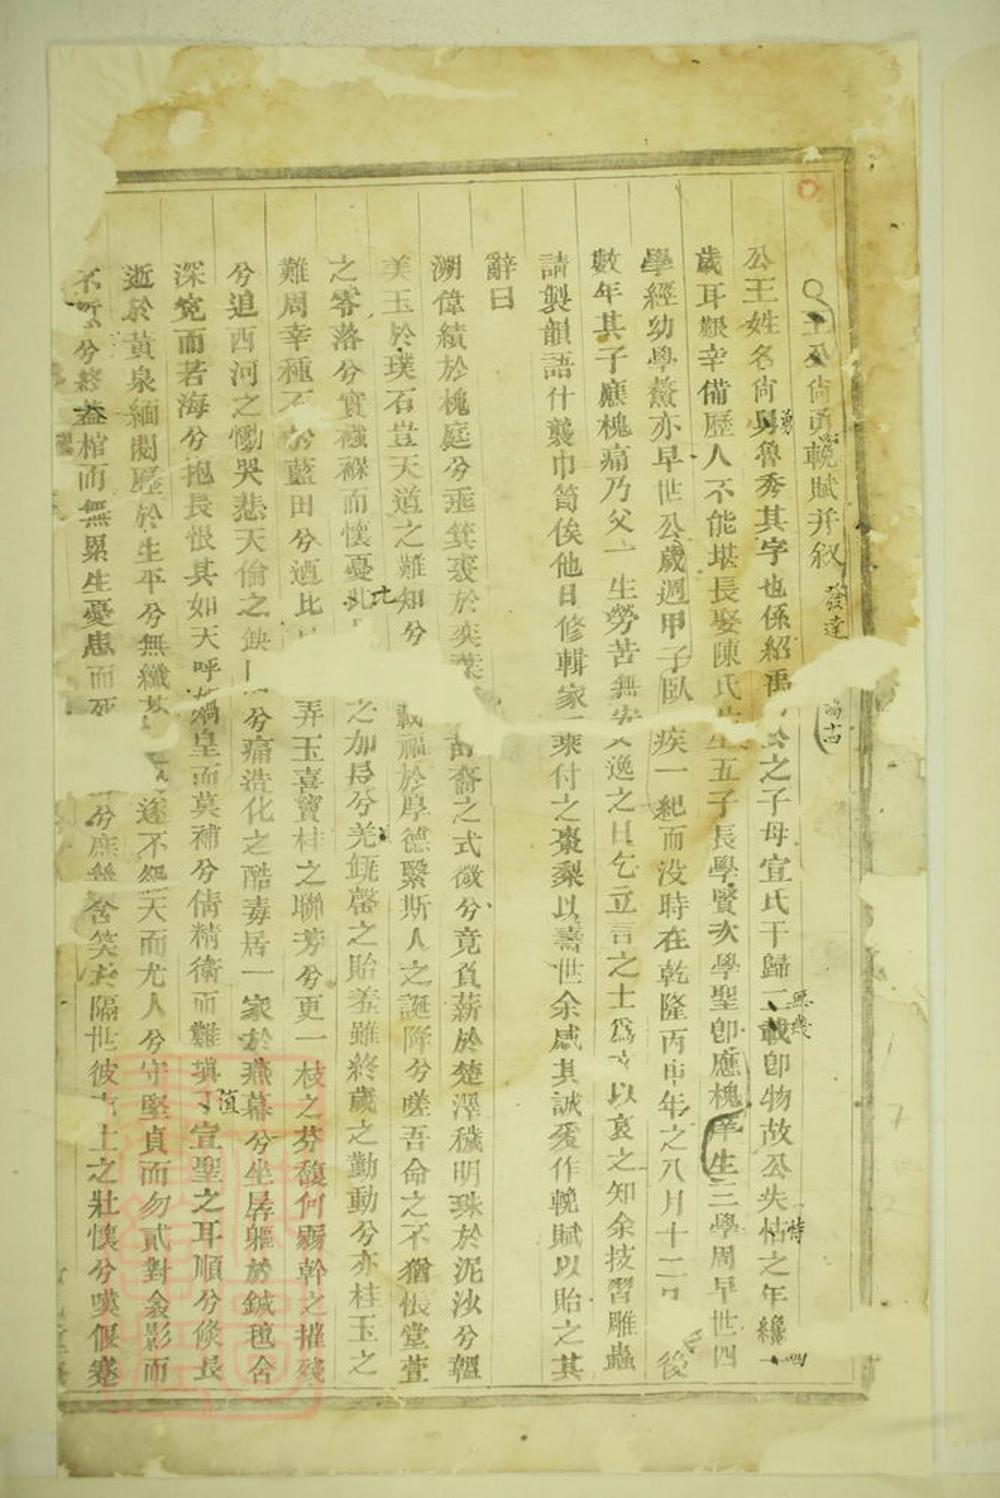 王公尙勇輓賦并叙 發達
公王姓名尙勇魯秀其字也係紹禹公之子母宣氏于歸二載卽物故公失怙之年纔一
歲耳艱辛備歷人不能堪長娶陳氏生五子長學賢次學聖卽應槐幸生三學周早世四
學經幼學薰亦早世公歲週甲子臥疾一紀而没時在乾隆丙申年之八月十二日後
數年其子應槐痛乃父一生勞苦無安逸之日乞立言之士爲文以哀之知余技習雕蟲
請製韻語什襲巾笥俟他日修輯家乘付之棗梨以壽世余感其誠爰作輓賦以貽之其
辭曰
溯偉績於槐庭兮垂箕裘於奕葉 裔之式微兮竟負薪於楚澤穢明珠於泥沙兮韞
美玉於璞石豈天道之難知兮 載福於厚德繄斯人之誕降兮嗟吾命之不猶悵堂萱
之零落兮實襁褓而懷憂 之加長兮羌缾罄之貽羞雖終歲之勤動兮亦桂玉之
難周幸種玉於藍田兮迺 弄玉喜寶桂之聯芳兮更一枝之芬馥何弱幹之摧殘
兮追西河之慟哭悲天倫之缺 兮痛造化之酷毒居一家於燕幕兮坐孱軀於鍼氊含
深寃而若海兮抱長恨其如天呼媧皇而莫補兮倩精衛而難塡 宣聖之耳順兮倏長
逝於黃泉緬閱歷於生平兮無纖 遂不怨天而尤人兮守堅貞而勿貳對衾影而
不 兮終蓋棺而無累生憂患而死 兮庶幾含笑 隔世彼 士之壯懷兮嘆偃蹇